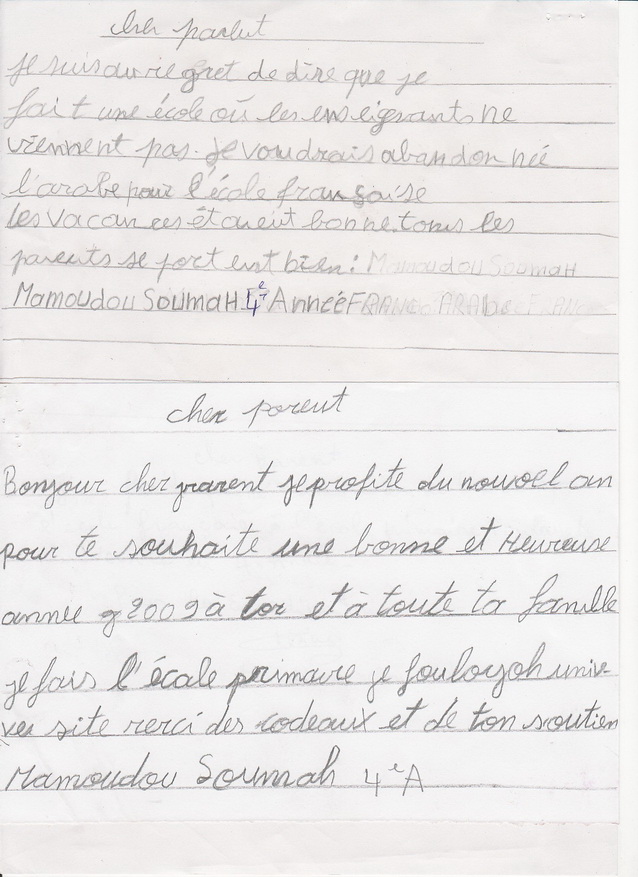 cher parent
je suis au regret de dire que je
fait une école où les enseignants ne
viennent pas. je voudrais abandonnéé
l'arabe pour l'école française
les vacances étaient bonne. tous les
parents se portent bien: Mamoudou Soumah
Mamoudou SoumaH 4e Année FRANCO ARAbe FRANC
cher parent
Bonjour cher parent je profite du nouvell an
pour te souhaite une bonne et Heureuse
annee 2009 à toi et à toute ta famille
je fais l'école primaire
ver site merci des cadeaux et de ton soutien
Mamoudou Soumah 4e A